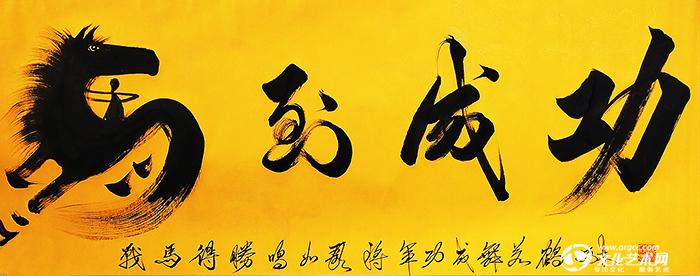 马到成功
戰馬得勝鳴如歌將軍功成解花鶴
www.orgcc.com
文化艺术网